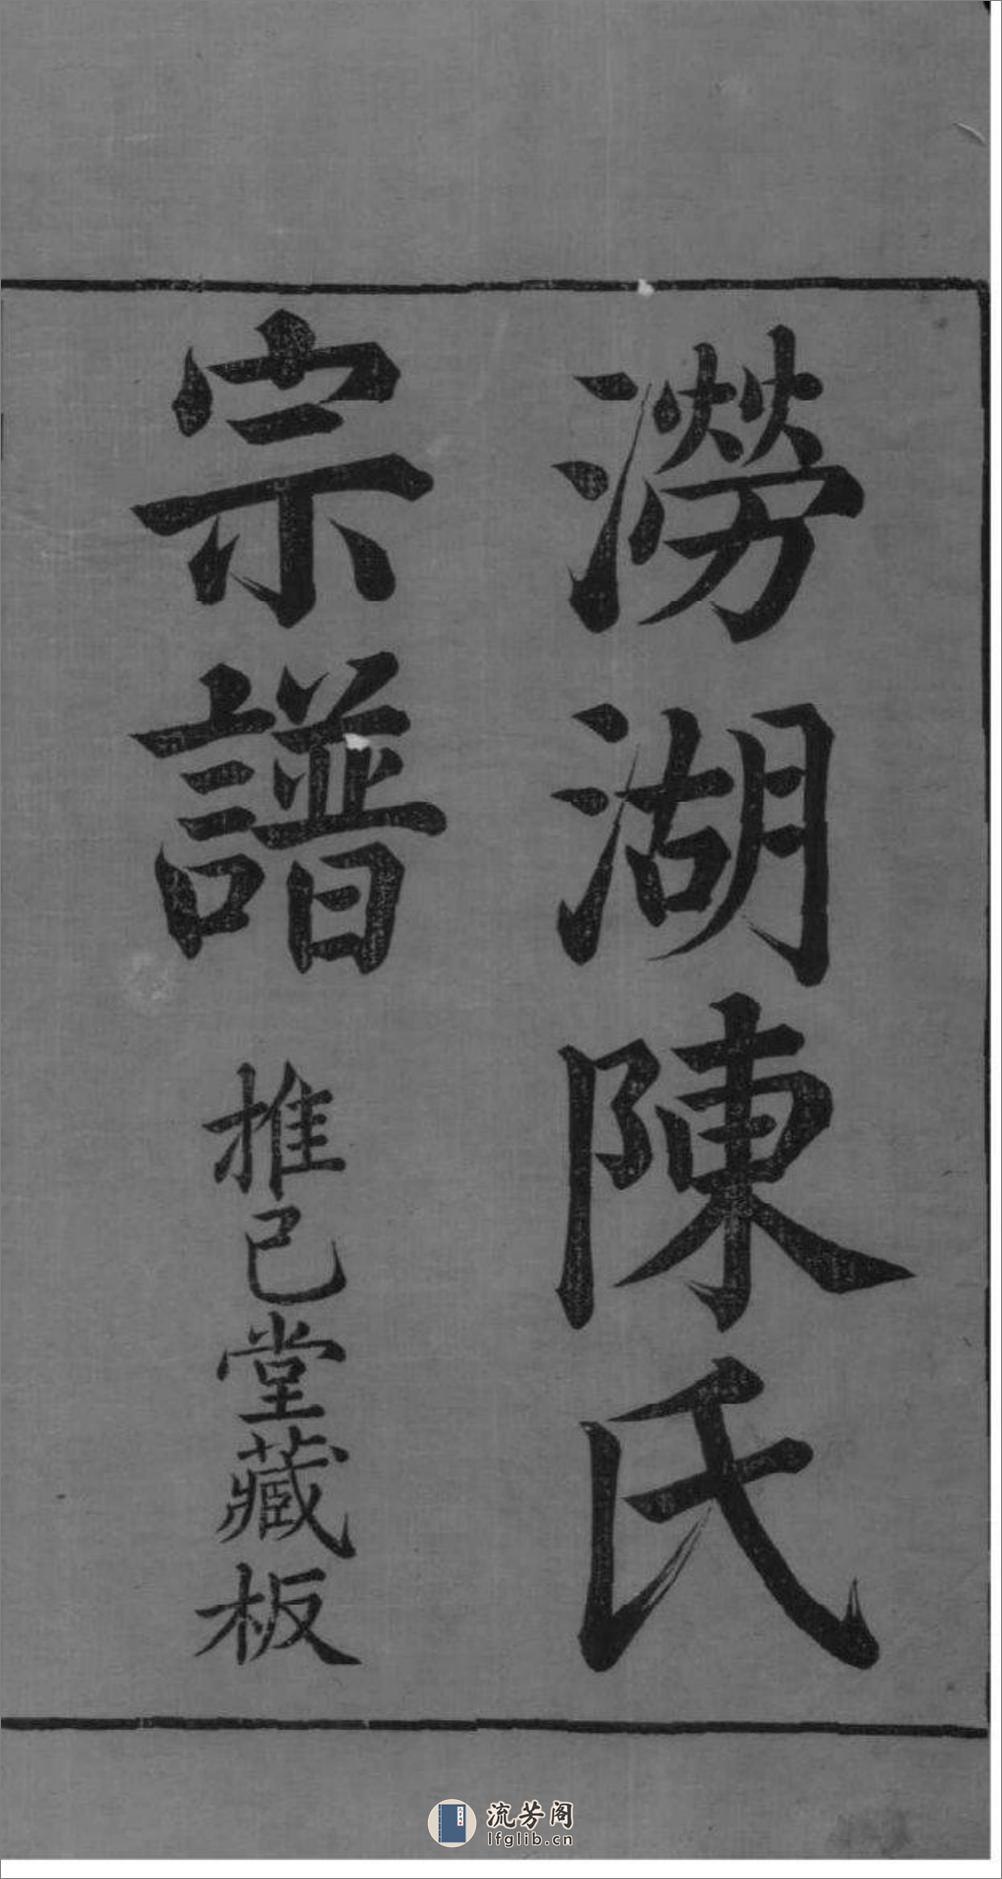 澇湖陳氏
宗譜
推己堂藏板
流芳阁
lfglib.cn